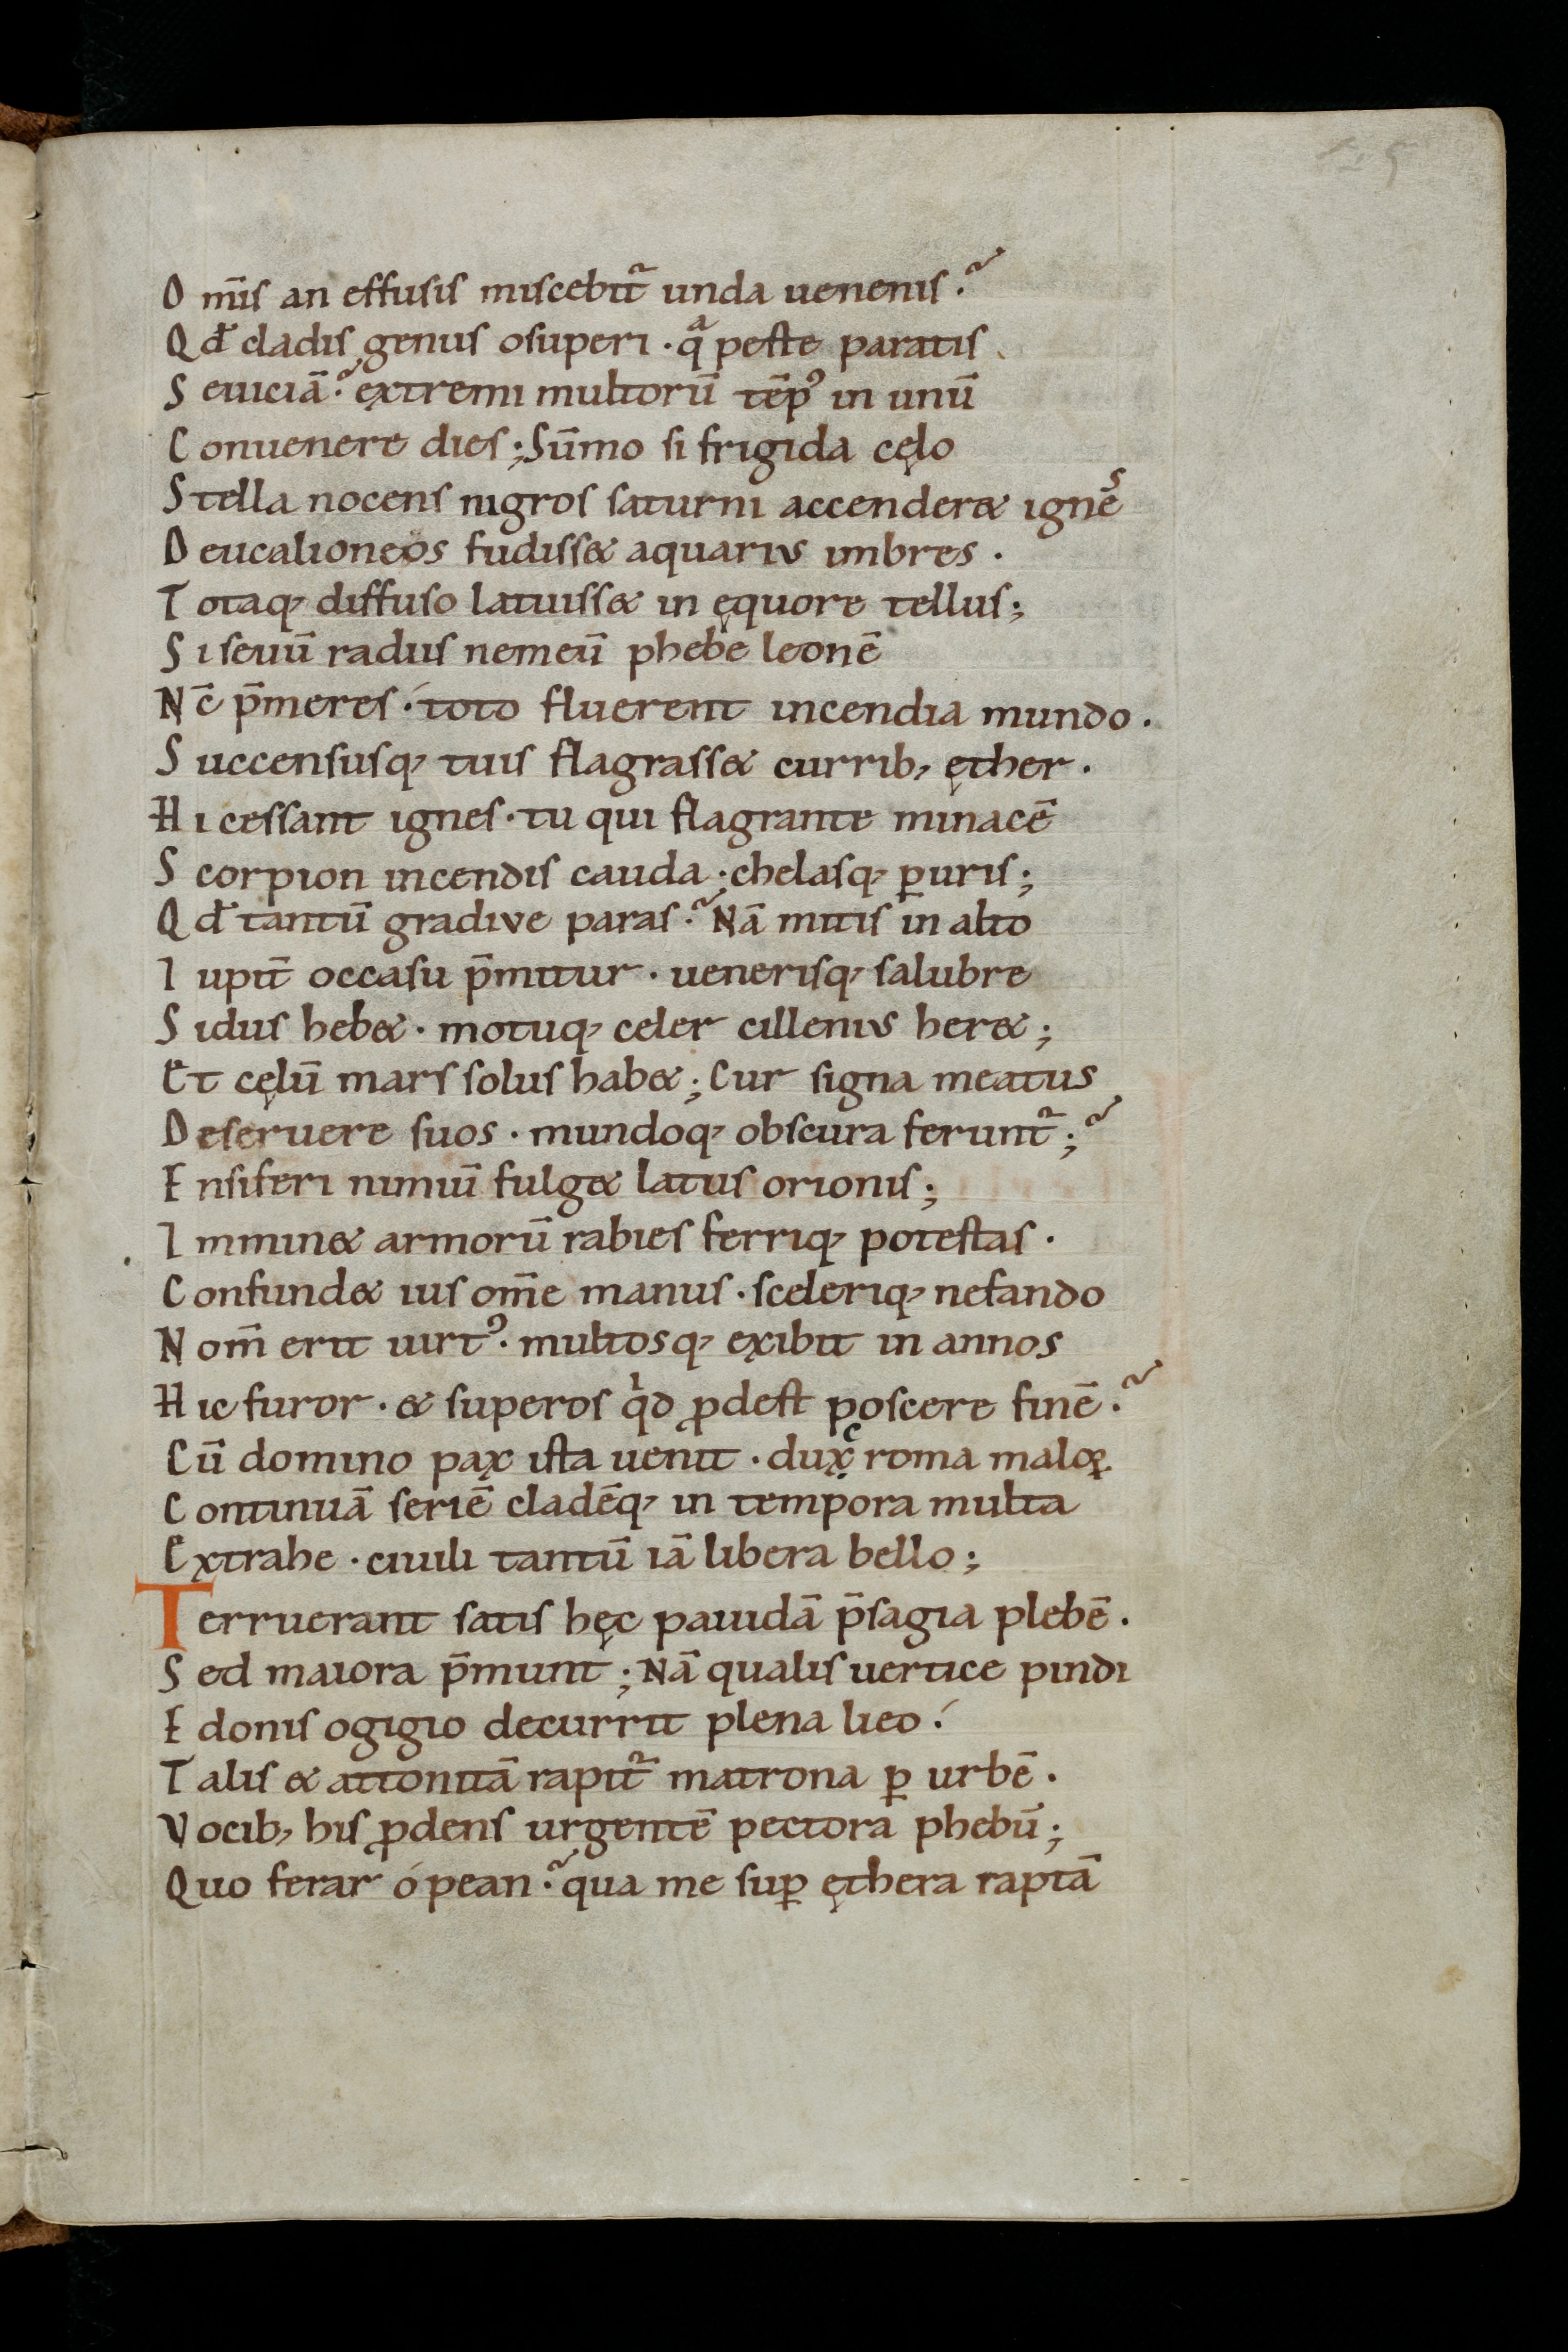 O mīs an effusis miscebit᷑ unda uenenis.
Qđ cladis genus osuperi · qͣ peste paratis
Seuiciā? extremi multorū tēpꝰ in unū
Conuenere dies; Sūmo si frigida cęlo
Stella nocens nigros saturni accender& ignēs
Deucalioneos fudiss& aquarius imbres ·
Totaq, diffuso latuiss& in ęquore tellus;
Si seuū radiis nemeū phebe leonē
Nc̄ p̄meres · toto fluerent incendia mundo ·
Succensusq, tuis flagrass& currib, ęther ·
Hi cessant ignes · tu qui flagrante minacē
Scorpion incendis cauda · chelasq, ꝑuris;
Qđ tantū gradive paras? Nā mitis in alto
Iupit̄ occasu p̄mitur · uenerisq, salubre
Sidus heb& · motuq, celer cillenius her&;
Et cęlū mars solus hab&; Cur signa meatus
Deseruere suos · mundoq, obscura ferunt᷑;
Ensiferi nimiū fulg& latus orionis;
Immin& armorū rabies ferriq, potestas ·
Confund& ius om̄e manus · sceleriq, nefando
Nom̄ erit uirtꝰ · multosq, exibit in annos
Hic furor · & superos qͥd ꝓdest poscere finē?
Cū domino pax ista uenit · duxͨ roma maloꝝ
Continuā seriē cladēq, in tempora multa
Extrahe · ciuili tantū iā libera bello;
Terruerant satis hęc pauidā p̄sagia plebē ·
Sed maiora p̄munt; Nā qualis uertice pindi
Edonis ogigio decurrit plena lieo ·
Talis & attonitā rapit᷑ matrona ꝑ urbē ·
Vocib, his ꝓdens urgentē pectora phebū;
Quo ferar ó pean? qua me suꝑ ęthera raptā